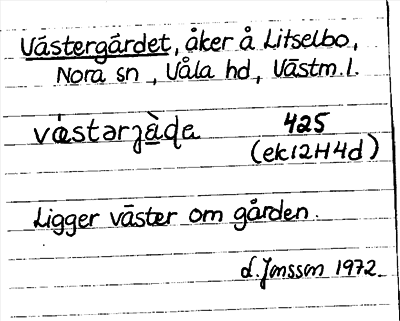 Västergärdet, åker å Litselbo,
Nora sn, Våla hd, Västm. l.
vá̤stərjà̤ḍa 425
(ek 12H4d)
Ligger väster om gården.
L. Jonsson 1972.